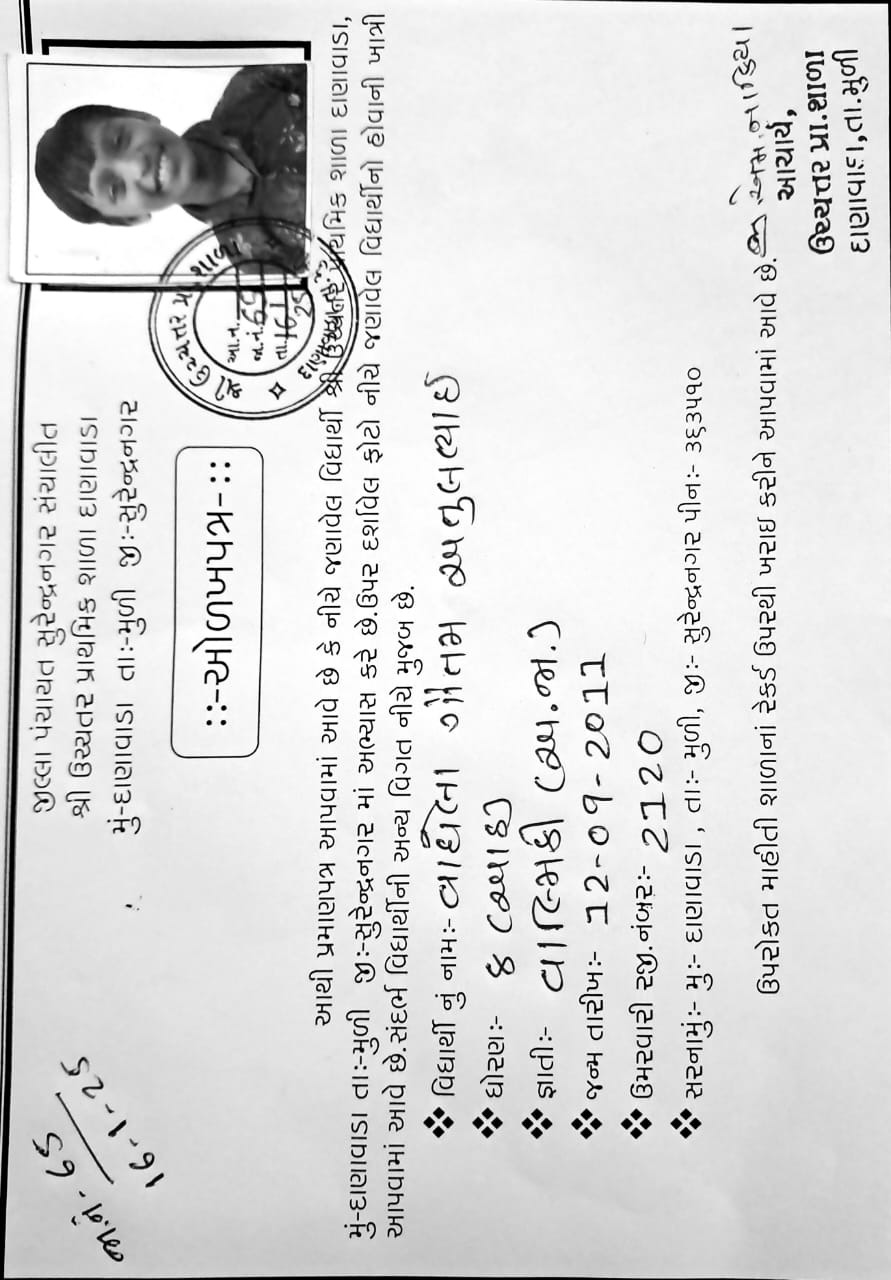 જીલ્લા પંચાયત સુરેન્દ્રનગર સંચાલીત
શ્રી ઉચ્ચતર પ્રાથમિક શાળા દાણાવાડા
મું-દાણાવાડા તાઃ-મુળી જીઃ-સુરેન્દ્રનગર
જા.નં.- 65
16-1-25
શ્રી ઉચ્ચતર પ્રા
આ.ન.
જા.નં. 65
તા. 16/1/25
::-ઓળખપત્ર-::
આથી પ્રમાણપત્ર આપવામાં આવે છે કે નીચે જણાવેલ વિદ્યાર્થી શ્રી ઉચ્ચતર પ્રાથમિક શાળા દાણાવાડા,
મું-દાણાવાડા તાઃ-મુળી જીઃ-સુરેન્દ્રનગર માં અભ્યાસ કરે છે.ઉપર દર્શાવેલ ફોટો નીચે જણાવેલ વિદ્યાર્થીનો હોવાની ખાત્રી
આપવામાં આવે છે.સંદર્ભ વિદ્યાર્થીની અન્ય વિગત નીચે મુજબ છે.
❖ વિદ્યાર્થી નું નામઃ- વાઘેલા ગૌતમ અતુલભાઈ
❖ ધોરણઃ- 8 (આઠ)
❖ જ્ઞાતીઃ- વાલ્મિકી (અ.જા.)
❖ જન્મ તારીખઃ- 12-09-2011
❖ ઉમરવારી રજી.નંબરઃ- 2120
❖ સરનામુંઃ- મુઃ- દાણાવાડા , તાઃ- મુળી, જીઃ- સુરેન્દ્રનગર પીનઃ- ૩૬૩૫૧૦
ઉપરોકત માહીતી શાળાનાં રેકર્ડ ઉપરથી ખરાઇ કરીને આપવામાં આવે છે.
આચાર્ય,
ઉચ્ચતર પ્રા.શાળા
દાણાવાડા,તા.મુળી